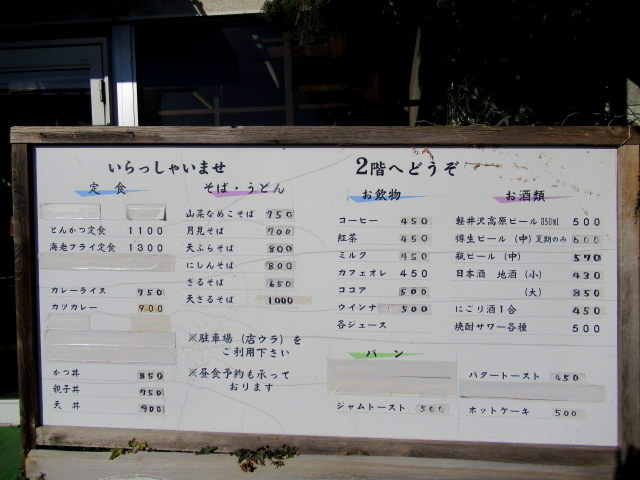 いらっしゃいませ
定食
とんかつ定食 1100
海老フライ定食 1300
カレーライス 750
カツカレー 900
かつ丼 850
親子丼 750
天丼 900
そば・うどん
山菜なめこそば 750
月見そば 700
天ぷらそば 800
にしんそば 800
ざるそば 650
天ざるそば 1000
※駐車場(店ウラ)を
ご利用下さい
※昼食予約も承って
おります
2階へどうぞ
お飲物
コーヒー 450
紅茶 450
ミルク 450
カフェオレ 450
ココア 500
ウインナ 500
各ジュース
パン
ジャムトースト 500
お酒類
軽井沢高原ビール 350ml 500
樽生ビール (中) 夏期のみ 600
瓶ビール (中) 570
日本酒 地酒 (小) 430
(大) 850
にごり酒1合 450
焼酎サワー各種 500
バタートースト 450
ホットケーキ 500